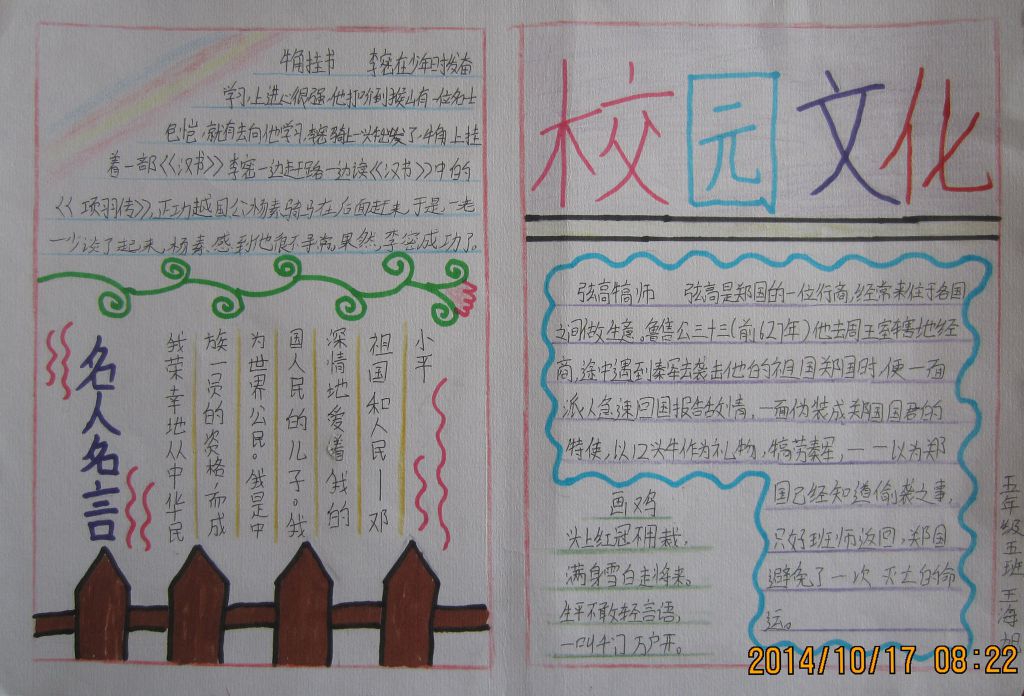 牛角挂书 李密在少年时发奋
学习,上进心很强,他打听到缑山有一位名士
包恺,就有去向他学习,李密骑上一头牛出发了,牛角上挂
着一部<<汉书>>李密一边赶路一边读<<汉书>>中的
<<项羽传>>,正功越国公杨素骑马在后面赶来,于是,一老
一少谈了起来,杨素感到他很不寻常,果然,李密成功了。
名人名言
我荣幸地从中华民
族一员的资格,而成
为世界公民。我是中
国人民的儿子。我
深情地爱着我的
祖国和人民——邓
小平
校园文化
弦高犒师 弦高是郑国的一位行商,经常来往于各国
之间做生意。鲁售公三十三(前627年)他去周王室辖地经
商,途中遇到秦军去袭击他的祖国郑国时,便一面
派人急速回国报告敌情,一面伪装成郑国国君的
特使,以12头牛作为礼物,犒劳秦军,一一以为郑
国已经知道偷袭之事,
只好班师返回,郑国
避免了一次 灭亡的命
运。
画鸡
头上红冠不用裁,
满身雪白走将来。
生平不敢轻言语,
一叫千门万户开。
五年级五班 王海旭
2014/10/17 08:22